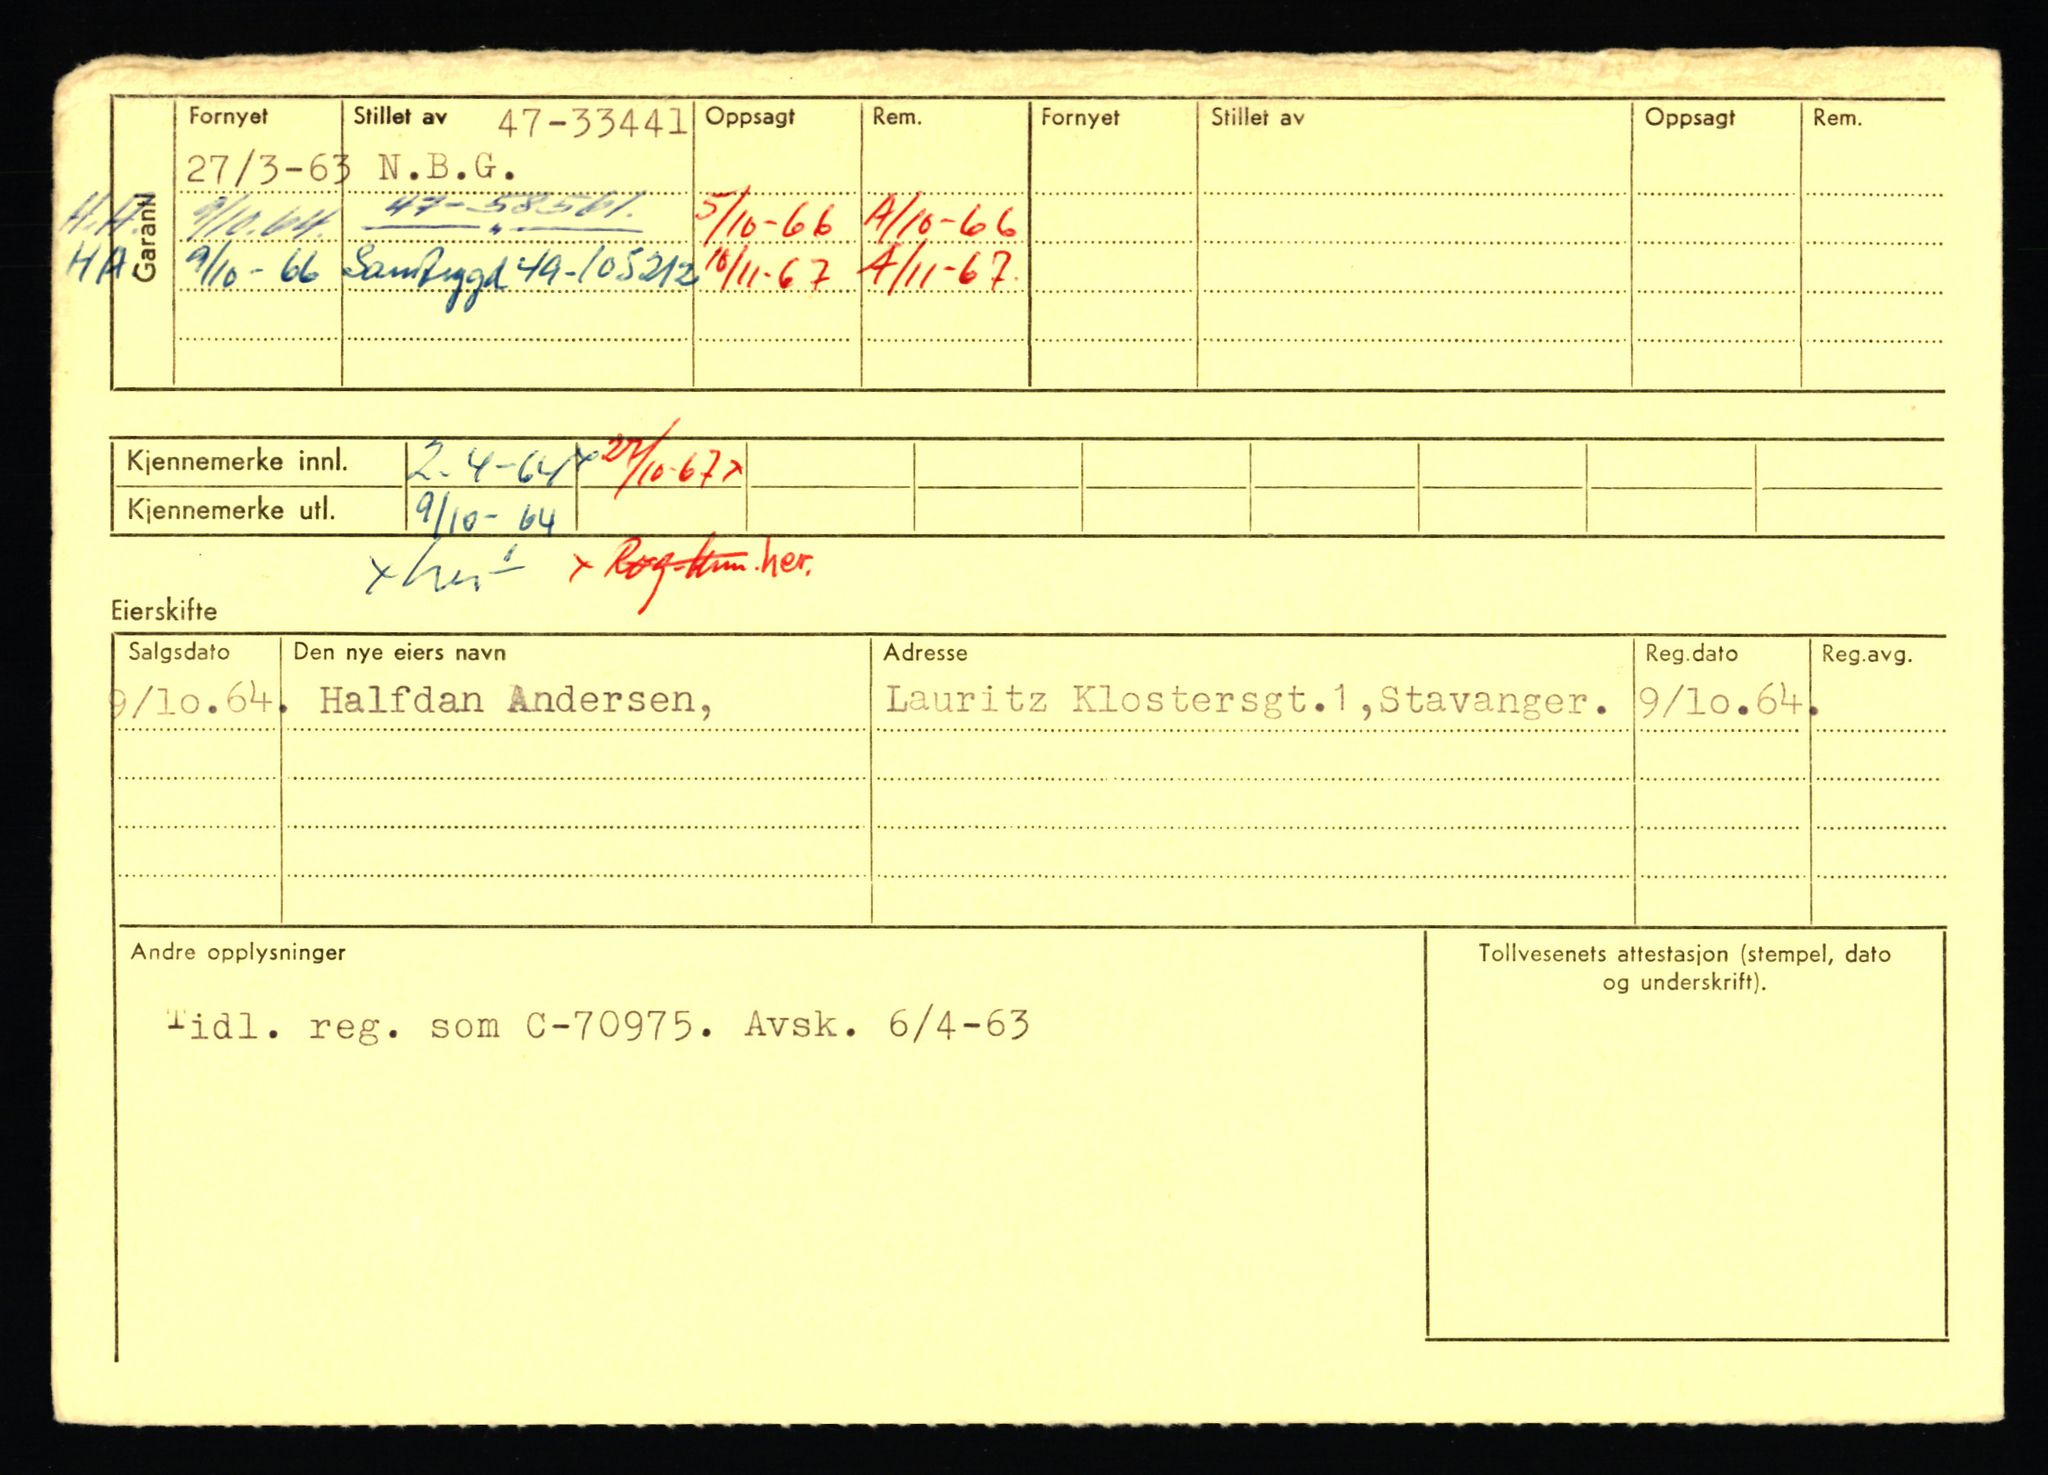 Garanti
Fornyet Stillet av 47-33441 Oppsagt Rem. Fornyet Stillet av Oppsagt Rem.
27/3-63 N.B.G.
H.A. 9/10.64. 47-58561. 5/10-66 A/10-66
—„—
HA 9/10-66 Samtrygd 49-105212 10/11-67 A/11-67.
Kjennemerke innl. 2-4-64x 27/10-67x
Kjennemerke utl. 9/10-64
x her x Rog. her.
Eierskifte
Salgsdato Den nye eiers navn Adresse Reg.dato Reg.avg.
9/lo.64. Halfdan Andersen, Lauritz Klostersgt.1,Stavanger. 9/lo.64.
Andre opplysninger
Tollvesenets attestasjon (stempel, dato
og underskrift).
Tidl. reg. som C-70975. Avsk. 6/4-63